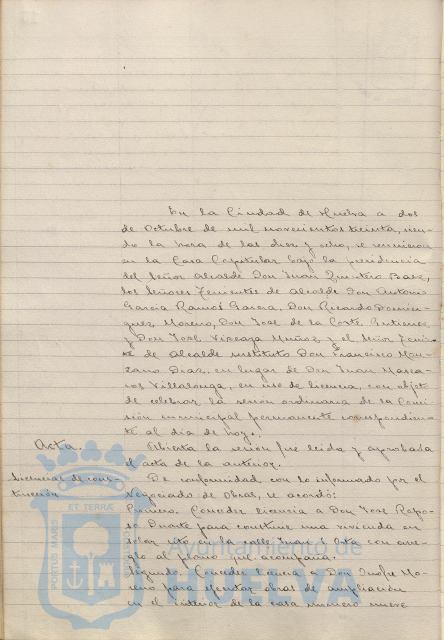 En la Ciudad de Huelva a dos
de Octubre de mil novecientos treinta, sien-
do la hora de las diez y ocho, se reunieron
en la Casa Capitular bajo la presidencia
del Señor Alcalde Don Juan Quintero Baez,
los Señores Tenientes de Alcalde Don Antonio
Garcia Ramos Garcia, Don Ricardo Domin-
guez Moreno, Don José de la Corte Gutierrez
y Don José Vizcaya Muñoz y el Señor Tenien-
te de Alcalde sustituto Don Francisco Man-
zano Diaz, en lugar de Don Juan Mascaros
Villalonga, en uso de licencia, con objeto
de celebrar la sesión ordinaria de la Comi-
sión municipal permanente correspondien-
te al día de hoy.
Acta. Abierta la sesión fue leida y aprobada
el acta de la anterior.
Licencias de cons- De conformidad con lo informado por el
trucción Negociado de Obras, se acordó:
Primero. Conceder licencia a Don José Rapo-
so Duarte para construir una vivienda en
solar sito en la calle con arre-
glo al plano que acompaña.
Segundo. Conceder licencia a Don Onofre Mo-
reno para ejecutar obras de ampliación
en el interior de la casa numero nueve
PORTUS MARIS ET TERRÆ
Ayuntamiento de
HUELVA